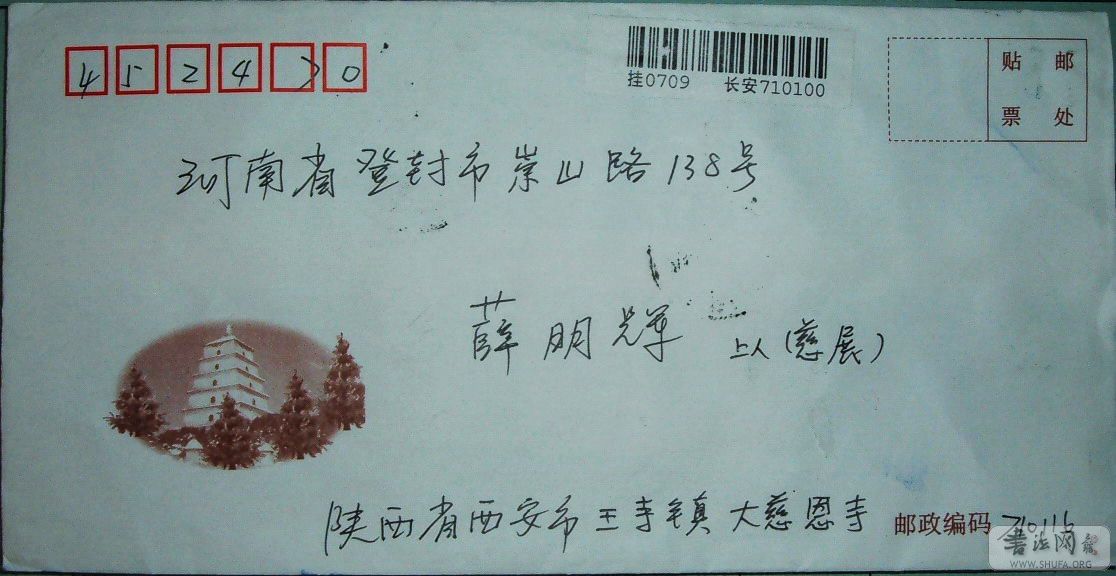 452470
挂0709 长安710100
贴 邮
票 处
河南省登封市崇山路138号
薛明辉 上人(慈展)
陕西省西安市王寺镇大慈恩寺 邮政编码 710116
书法网
WWW.SHUFA.ORG